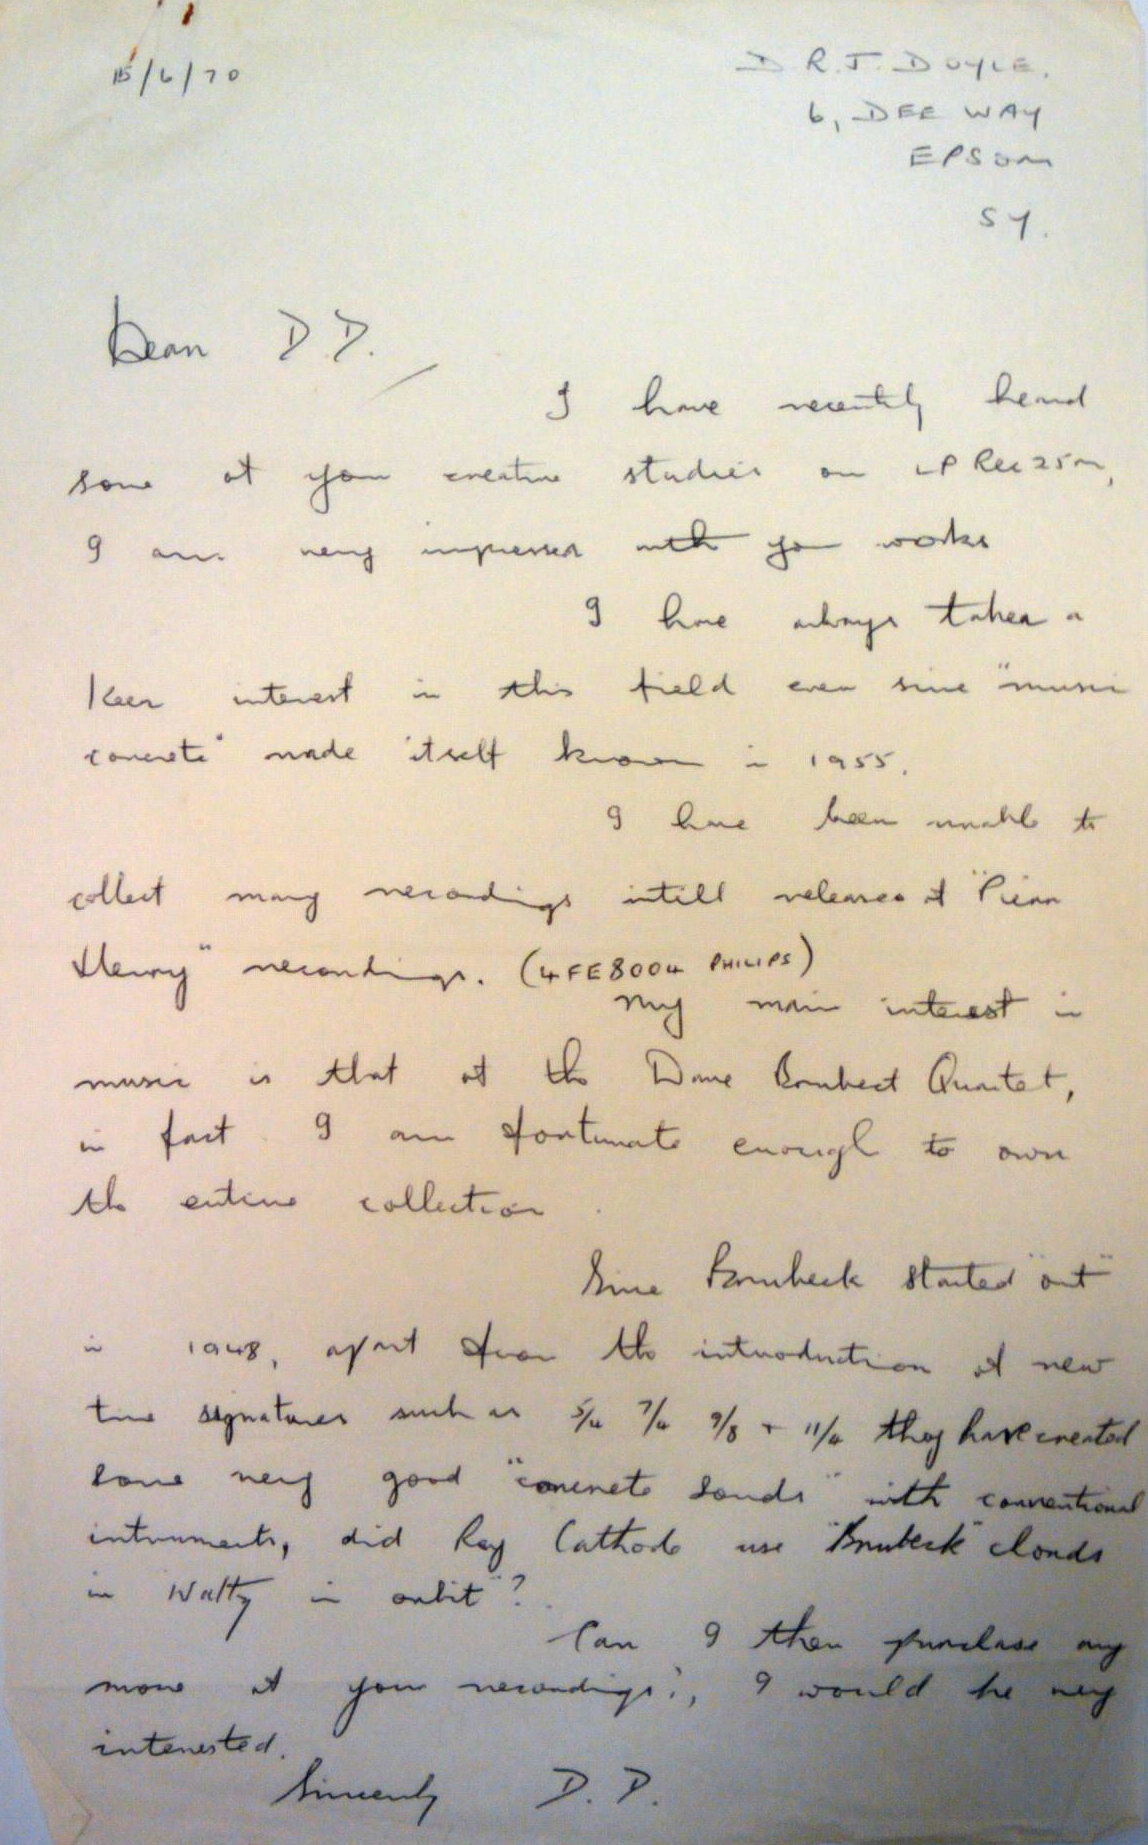 15/6/70
D R.J. DOYLE.
6, DEE WAY
EPSOM
SY.
Dear D.D.
I have recently heard
some of your creative studies on LP Rec 25m,
I am very impressed with your works
I have always taken a
keen interest in this field ever since "music
concrete" made itself known in 1955.
I have been unable to
collect many recordings intill releases of "Pierre
Henry" recordings. (4FE8004 PHILIPS)
My main interest in
music is that of the Dave Brubeck Quartet,
in fact I am fortunate enough to own
the entire collection.
Since Brubeck started "out"
in 1948, apart from the introduction of new
time signatures such as 5/4 7/4 9/8 + 11/4 they have created
some very good "concrete sounds" with conventional
intruments, did Ray Cathode use "Brubeck" chords
in Waltz in orbit"?
Can I then purchase any
more of your recordings?, I would be very
interested.
Sincerely D.D.